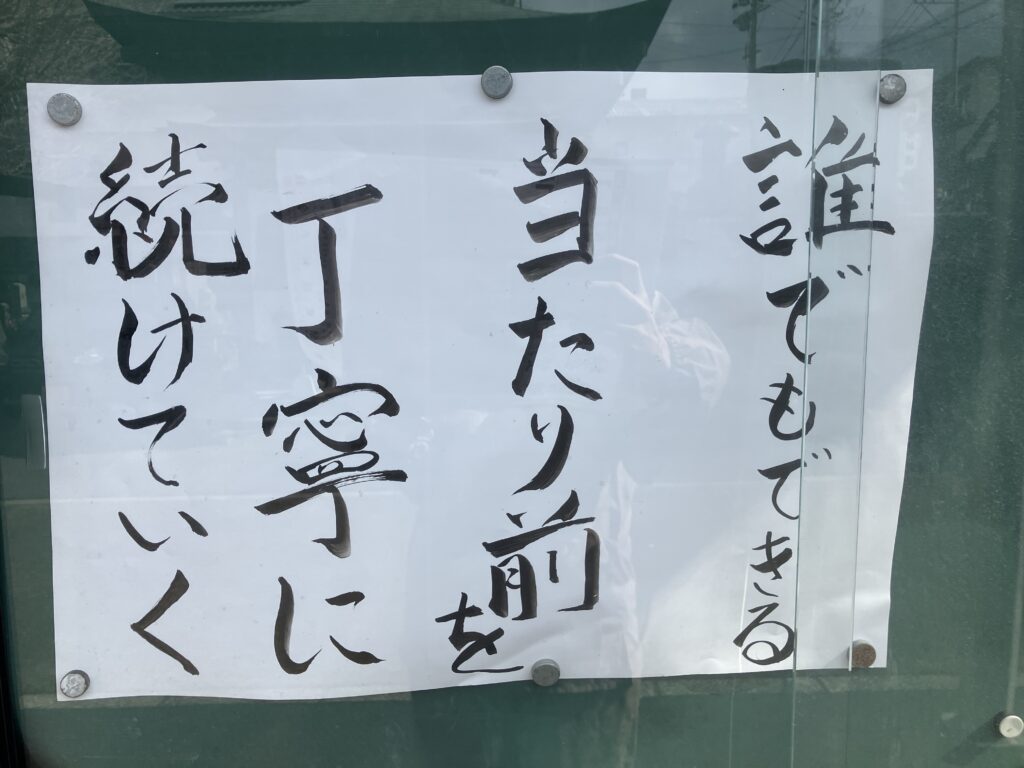 誰でもできる
当たり前を
丁寧に
続けていく